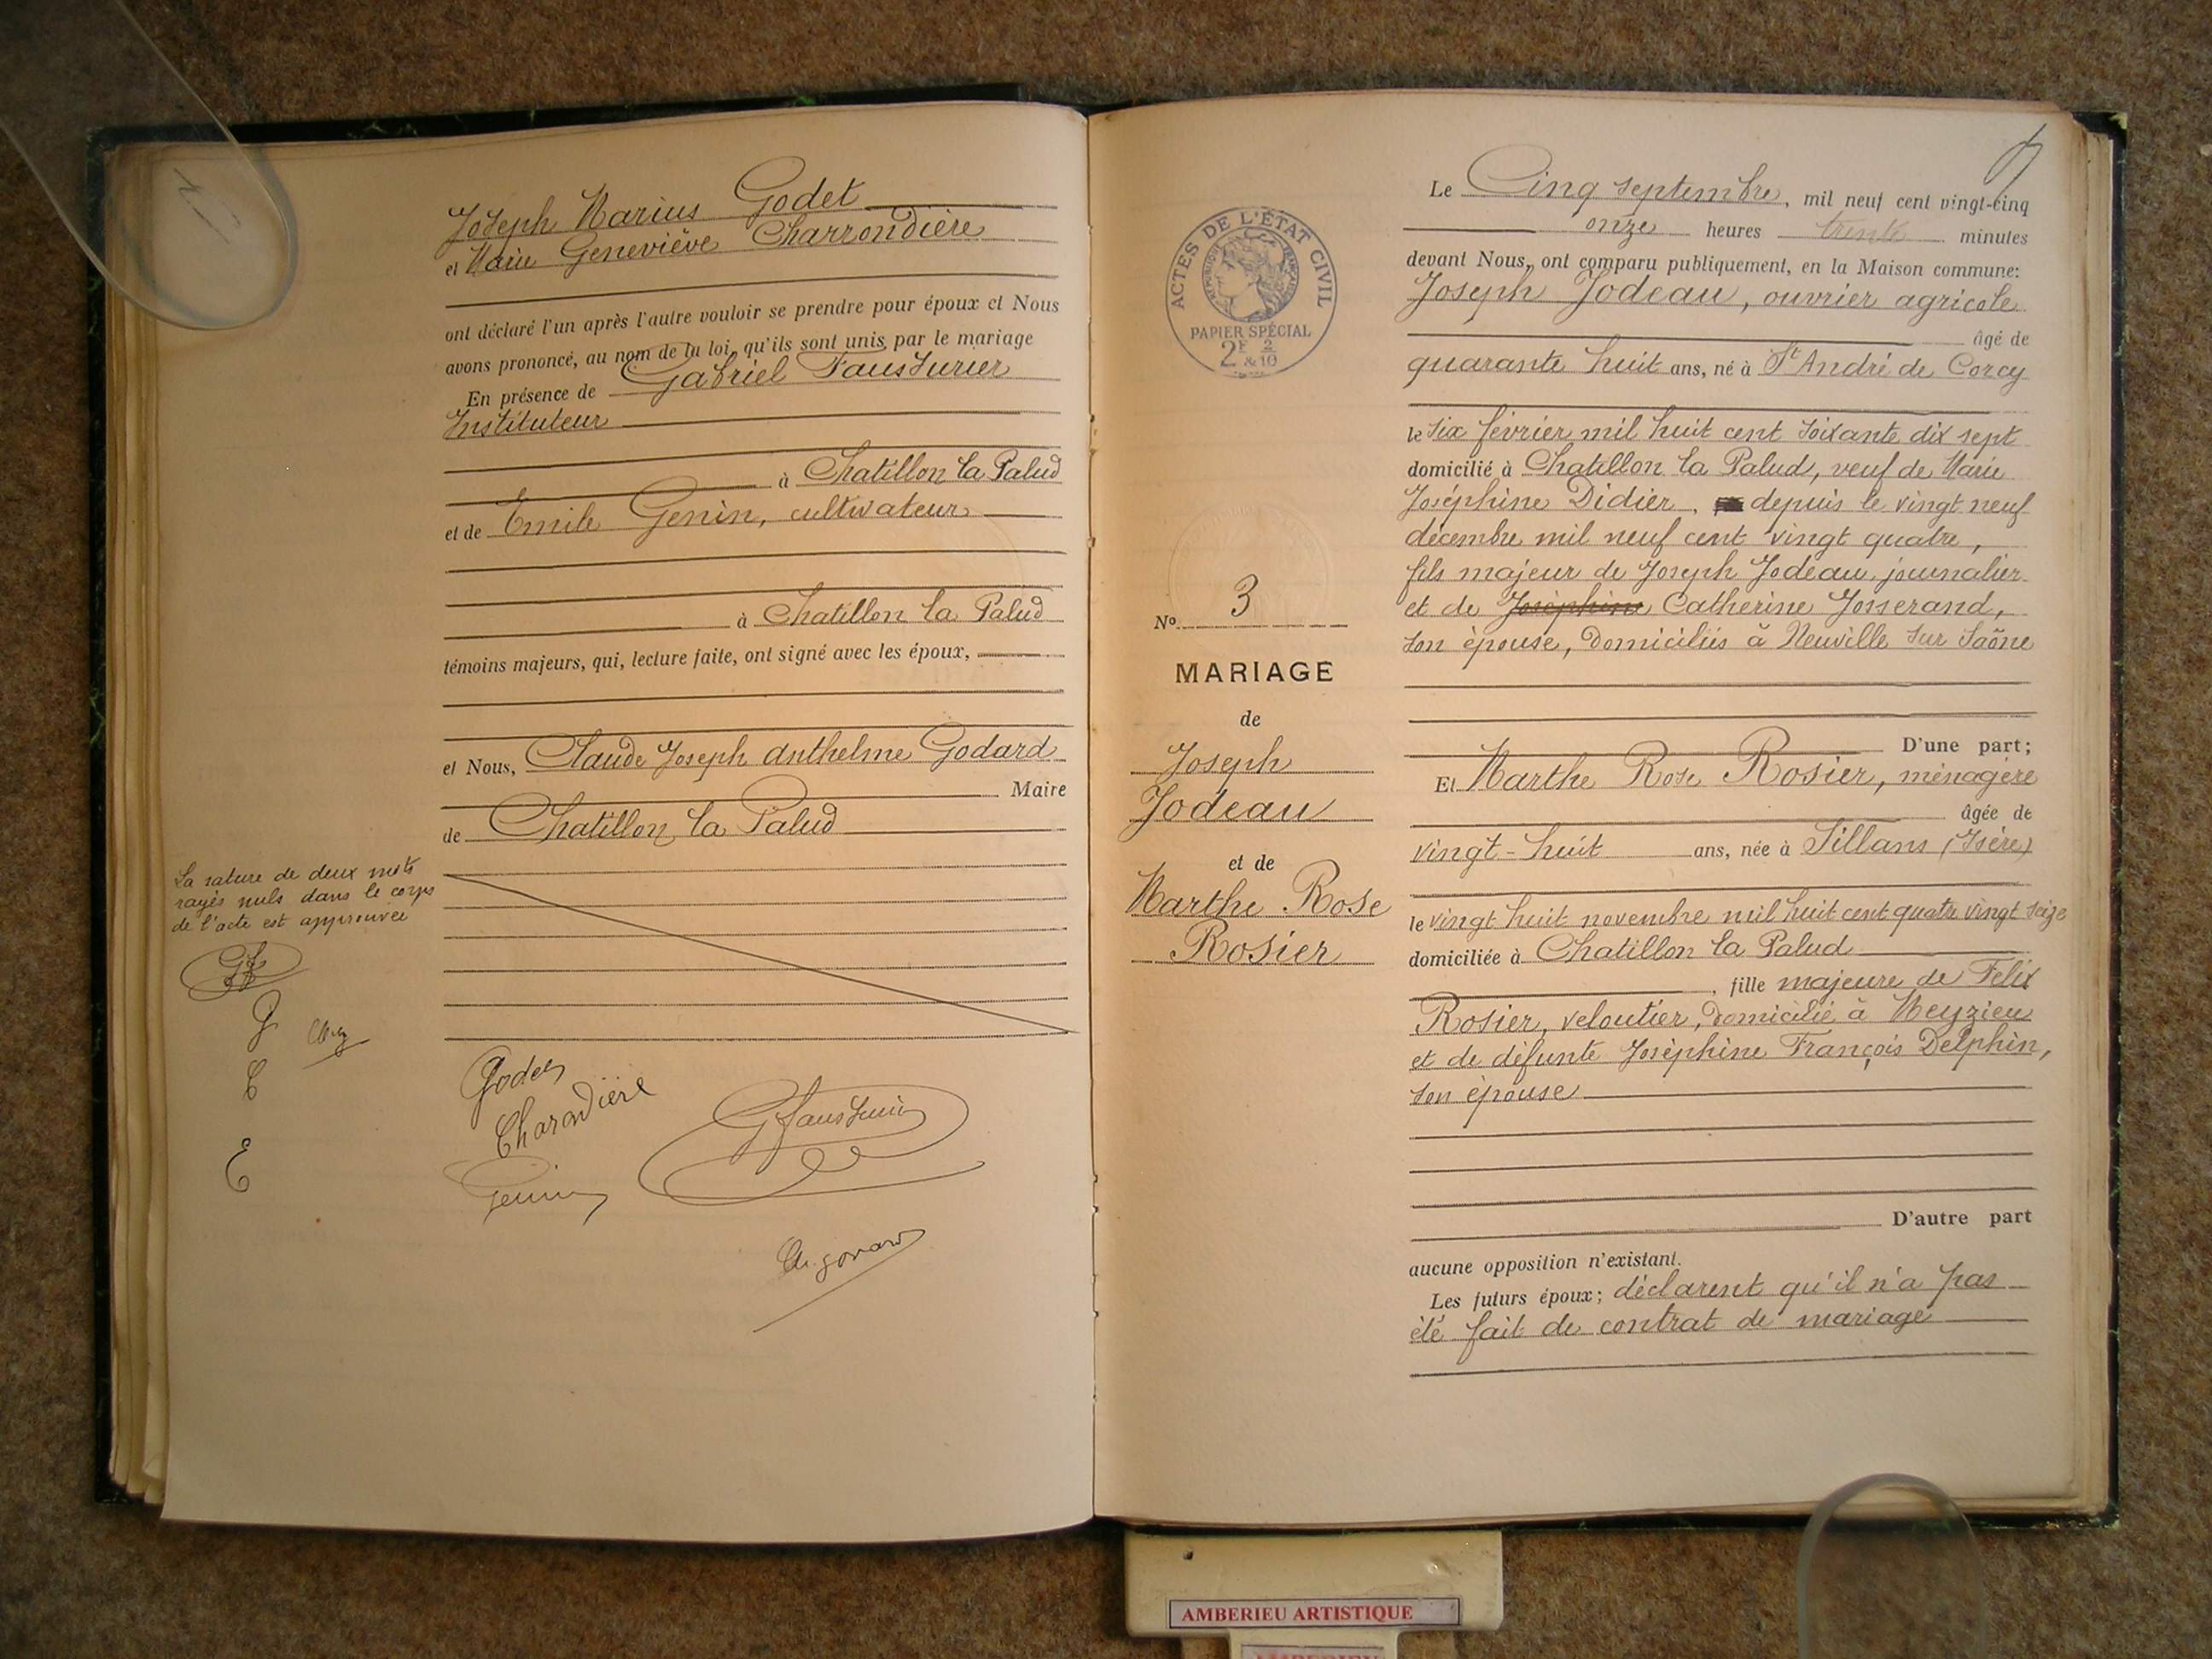 Joseph Marius Godet
et Marie Geneviève Charrondière
ont déclaré l'un après l'autre vouloir se prendre pour époux et Nous
avons prononcé, au nom de la loi, qu'ils sont unis par le mariage
En présence de Gabriel Fausturier
Instituteur
à Chatillon la Palud
et de Emile Genin, cultivateur
à Chatillon la Palud
témoins majeurs, qui, lecture faite, ont signé avec les époux,
et Nous, Claude Joseph Anthelme Godard
Maire
de Chatillon la Palud
La rature de deux mots
rayés nuls dans le corps
de l'acte est approuvée
GF
G
C
E
Godet
Charondière
GFausturier
Genin
ACTES DE L'ÉTAT CIVIL
RÉPUBLIQUE FRANÇAISE
PAPIER SPÉCIAL
2F 2
& 10
No 3
MARIAGE
de
Joseph
Jodeau
et de
Marthe Rose
Rosier
Le Cinq septembre, mil neuf cent vingt-cinq
onze heures trente minutes
devant Nous, ont comparu publiquement, en la Maison commune:
Joseph Jodeau, ouvrier agricole
âgé de
quarante huit ans, né à St André de Corcy
le six février mil huit cent soixante dix sept
domicilié à Chatillon la Palud, veuf de Marie
Joséphine Didier, depuis le vingt neuf
décembre mil neuf cent vingt quatre,
fils majeur de Joseph Jodeau, journalier
et de Joséphine Catherine Josserand,
son épouse, domiciliés à Neuville sur Saône
D'une part;
Et Marthe Rose Rosier, ménagère
âgée de
vingt-huit ans, née à Sillans (Isère)
le vingt huit novembre mil huit cent quatre vingt seize
domiciliée à Chatillon la Palud
, fille majeure de Felix
Rosier, veloutier, domicilié à Meyzieu
et de défunte Joséphine François Delphin,
son épouse
D'autre part
aucune opposition n'existant.
Les futurs époux; déclarent qu'il n'a pas
été fait de contrat de mariage
AMBERIEU ARTISTIQUE
AMBERIEU